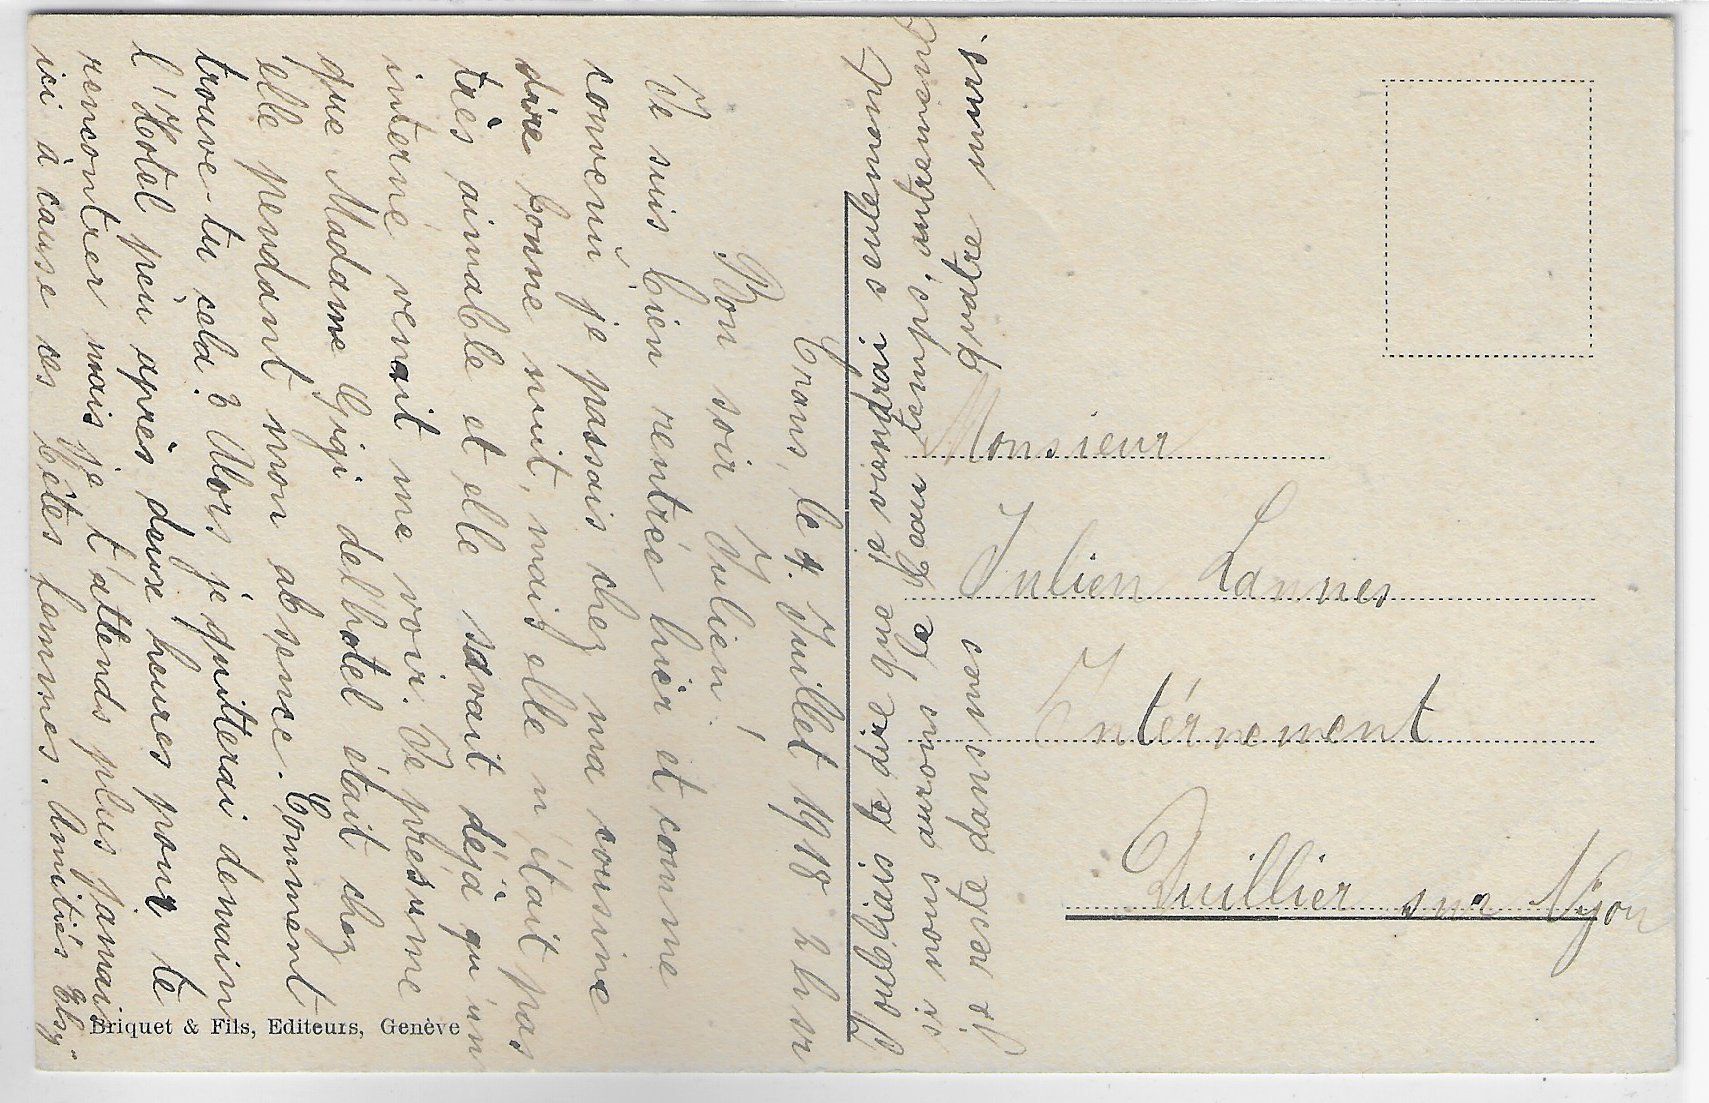 Crans, le 9. Juillet 1918 2 h sr
Bon soir Julien!
Je suis bien rentrée hièr et comme
convenu je passais chez ma cousine
dire bonne nuit, mais elle n'était pas
très aimable et elle savait déjà qu'un
interné venait me voir. Je présume
que Madame Gigi del'hotel était chez
elle pendant mon absence. Comment
trouve-tu cela? Alors je quitterai demain
l'Hotel peu après deuxe heures pour te
rencontrer mais je t'attends plus jamais
ici à cause ces bêtes hommes. Amitiés Elsy.
J'oubliais te dire que je viendrai seulement
si nous aurons le beau temps, autrement
je reste dans mes quatre murs.
Monsieur
Julien Lannes
Intérnement
Duillier sur Nyon
Briquet & Fils, Editeurs, Genève